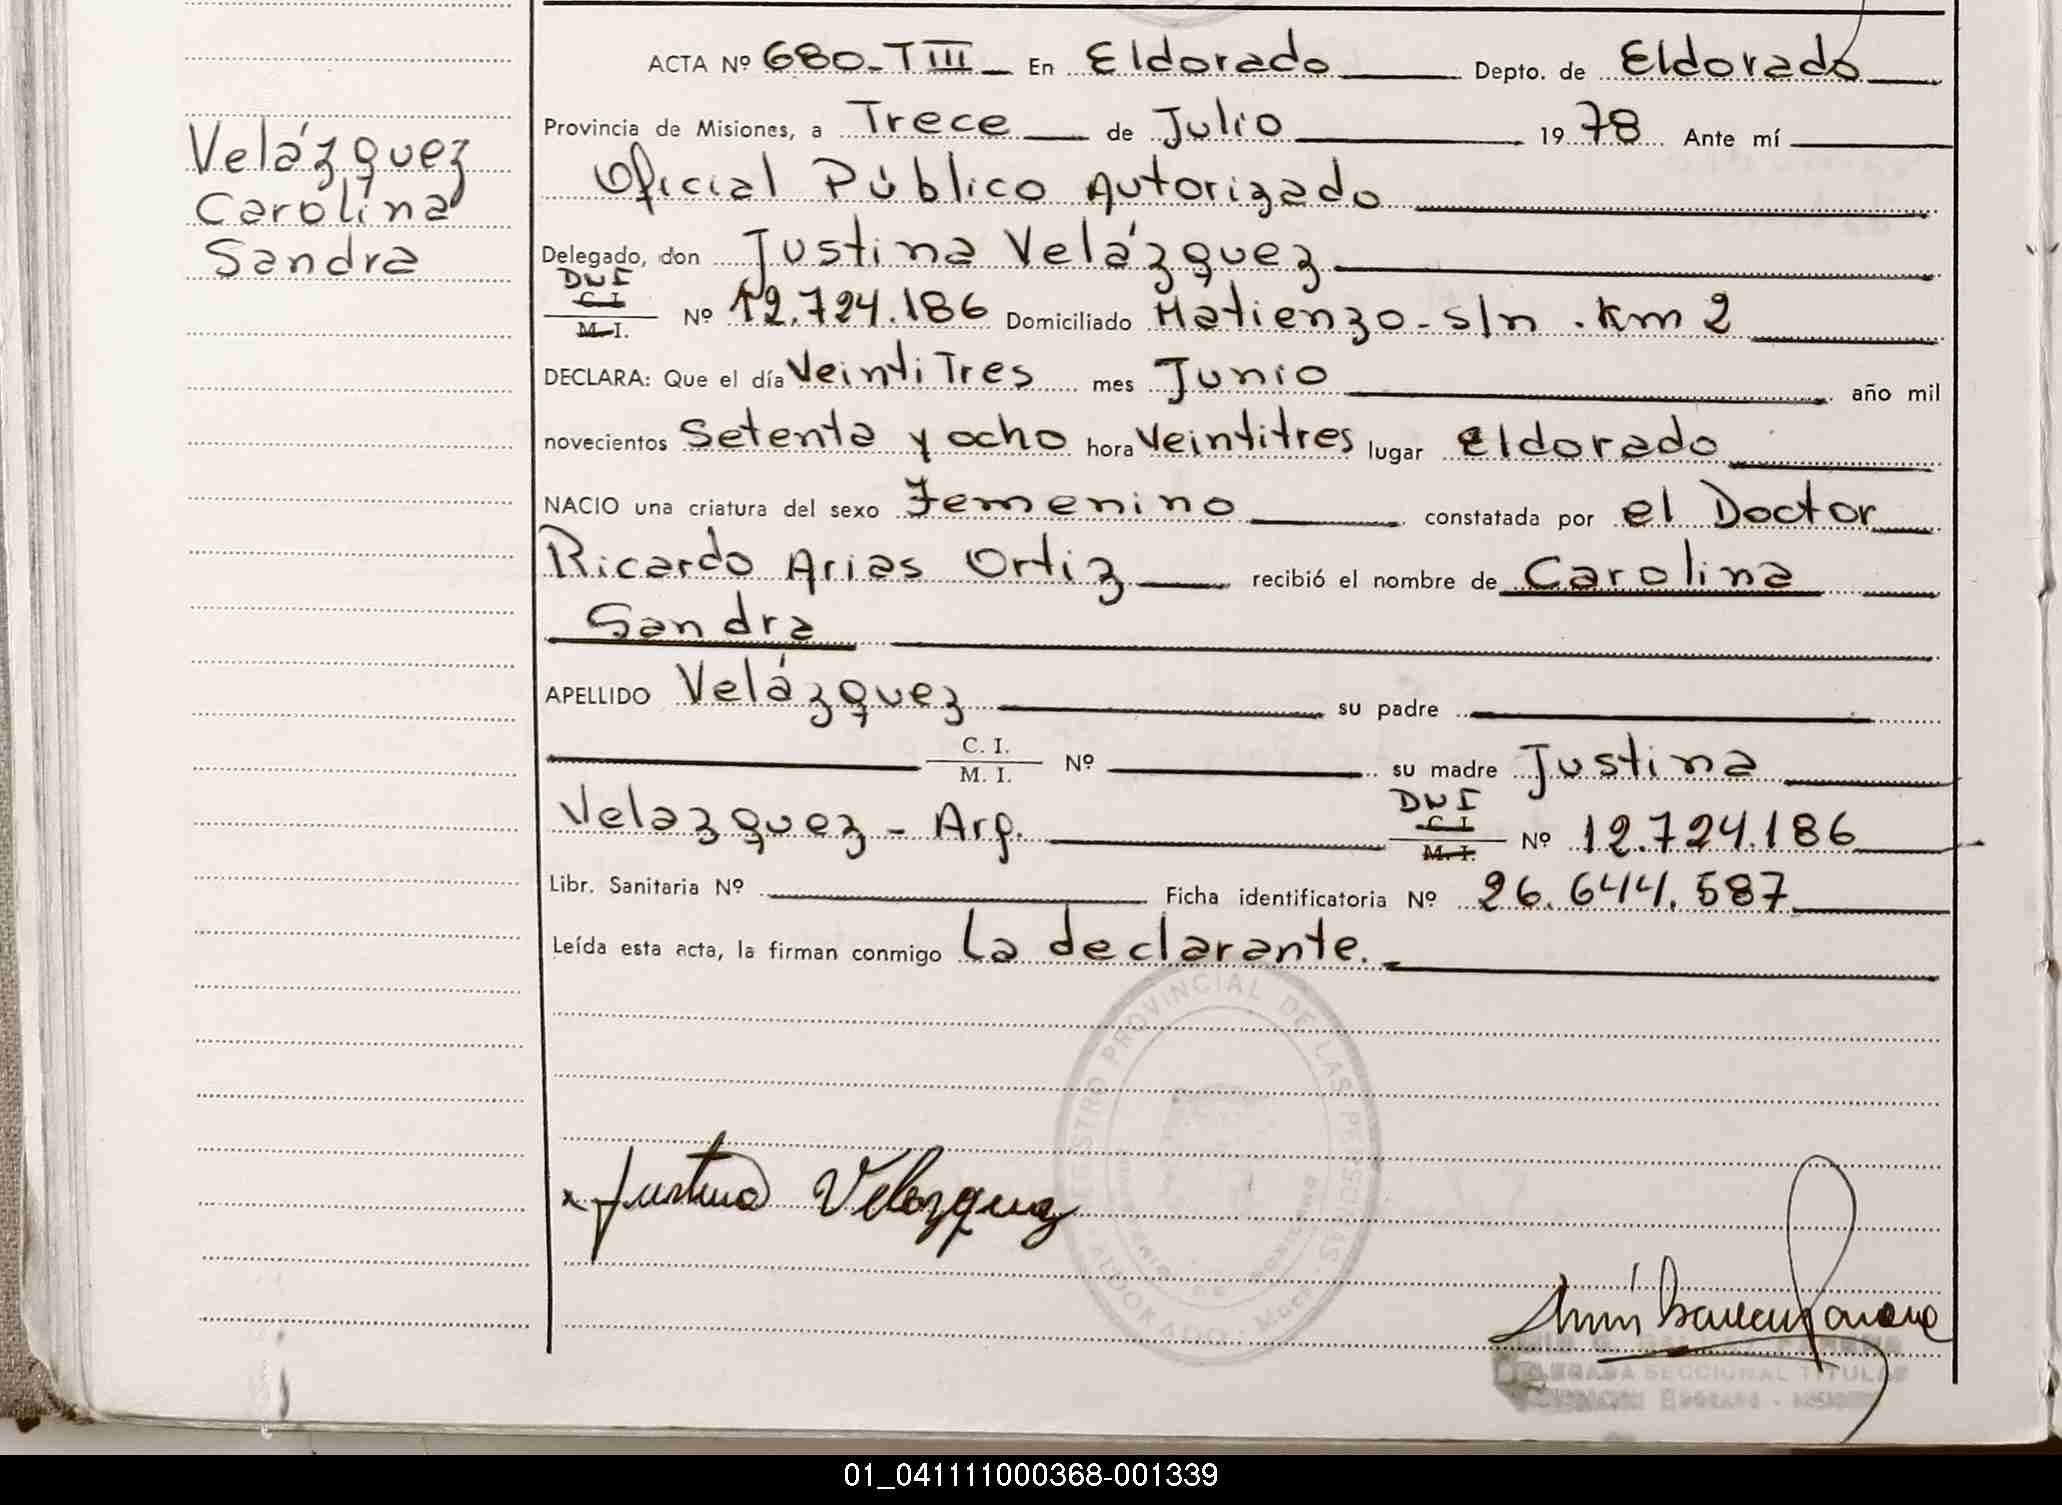 ACTA Nº 680-T III En Eldorado Depto. de Eldorado
Velázquez
Carolina
Sandra
Provincia de Misiones, a Trece de Julio 1978 Ante mí
Oficial Público Autorizado
Delegado, don Justina Velázquez
DNI
C. I.
M. I.
Nº 12.724.186 Domiciliado Matienzo - s/n . Km 2
DECLARA: Que el día VeintiTres mes Junio año mil
novecientos Setenta y ocho hora Veintitres lugar Eldorado
NACIO una criatura del sexo Femenino constatada por el Doctor
Ricardo Arias Ortiz recibió el nombre de Carolina
Sandra
APELLIDO Velázquez su padre
C. I.
M. I.
Nº su madre Justina
Velazquez - Arg. DNI
C. I.
M. I.
Nº 12.724.186
Libr. Sanitaria Nº Ficha identificatoria Nº 26.644.587
Leída esta acta, la firman conmigo La declarante.
REGISTRO PROVINCIAL DE LAS PERSONAS
ELDORADO
Justina Velazquez
SECCIONAL TITULAR
01_041111000368-001339